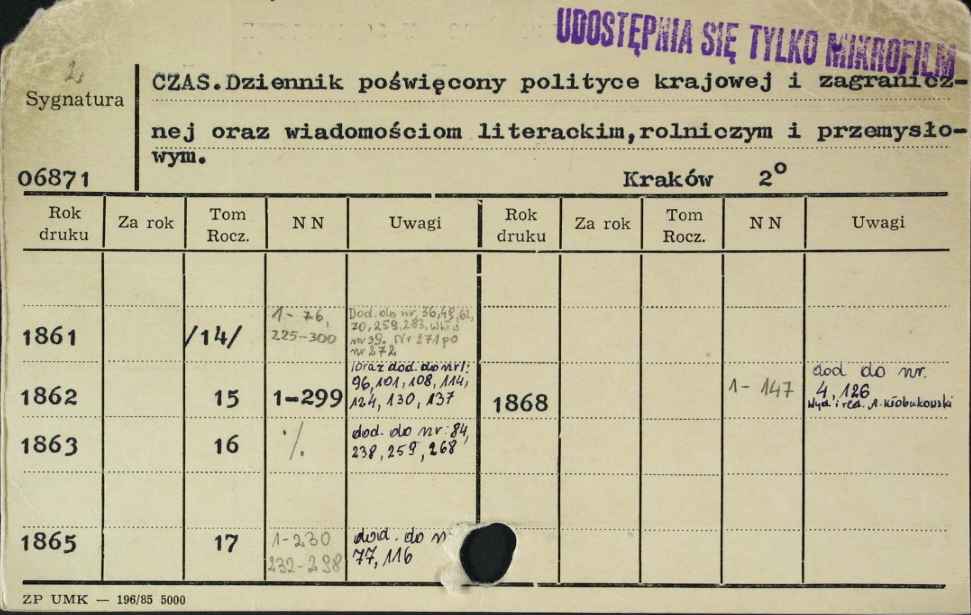 UDOSTĘPNIA SIĘ TYLKO MIKROFILM
2.
Sygnatura
06871
CZAS.Dziennik poświęcony polityce krajowej i zagranicz-
nej oraz wiadomościom literackim,rolniczym i przemysło-
wym.
Kraków 2°
Rok druku Za rok Tom Rocz. NN Uwagi Rok druku Za rok Tom Rocz. NN Uwagi
1861 /14/ 1-76, 225-300 Dod. do nr, 36,49,61, 70,259.283. nr 39. Nr 271 po nr 272
1862 15 1-299 oraz dod. do nr 1: 96,101,108,114, 124,130,137 1868 1-147 dod do nr. 4,126 Wyd. i red. A. Kłobukowski
1863 16 ./. dod. do nr: 84, 238,259,268
1865 17 1-230 232-298 dod. do n 77,116
ZP UMK — 196/85 5000